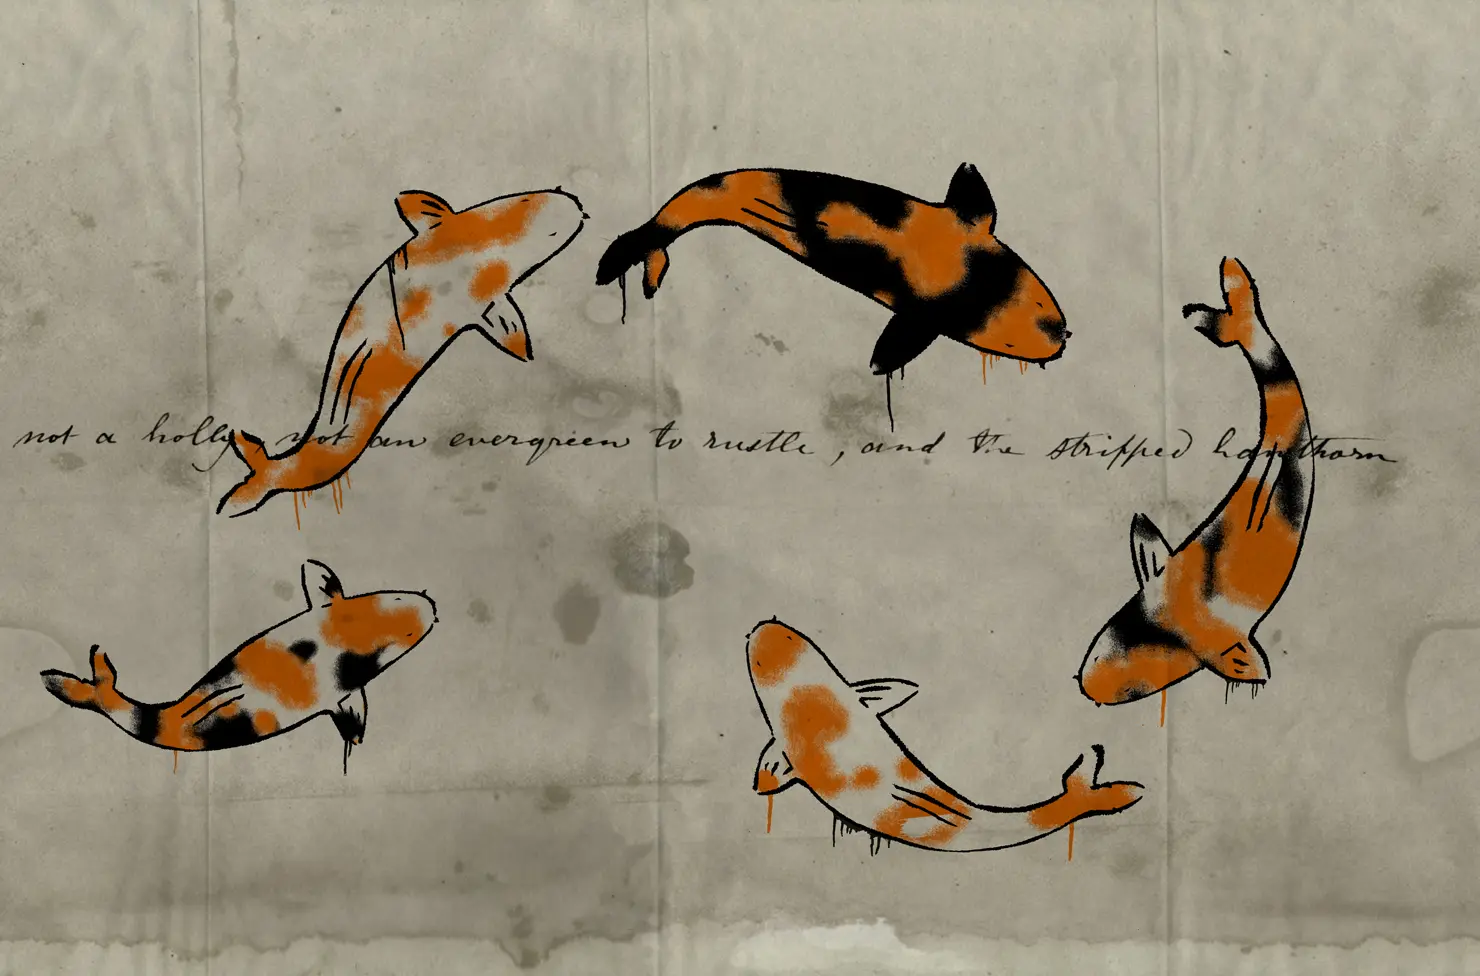 not a holly, not an evergreen to rustle, and the stripped hawthorn